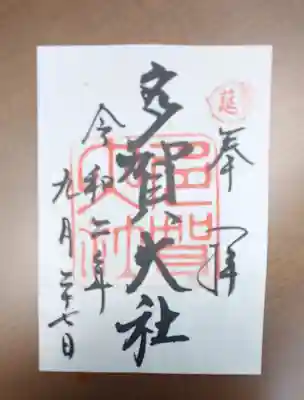 奉拝
延
多賀大社
多賀大社
令和二年
九月二十七日